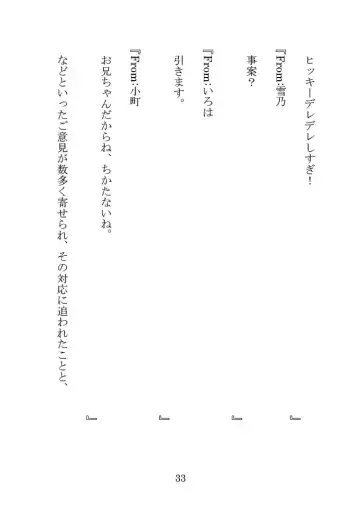 ヒッキーデレデレしすぎ!
』
『From:雪乃
事案?
』
『From:いろは
引きます。
』
『From:小町
お兄ちゃんだからね、ちかたないね。
』
などといったご意見が数多く寄せられ、その対応に追われたことと、
33